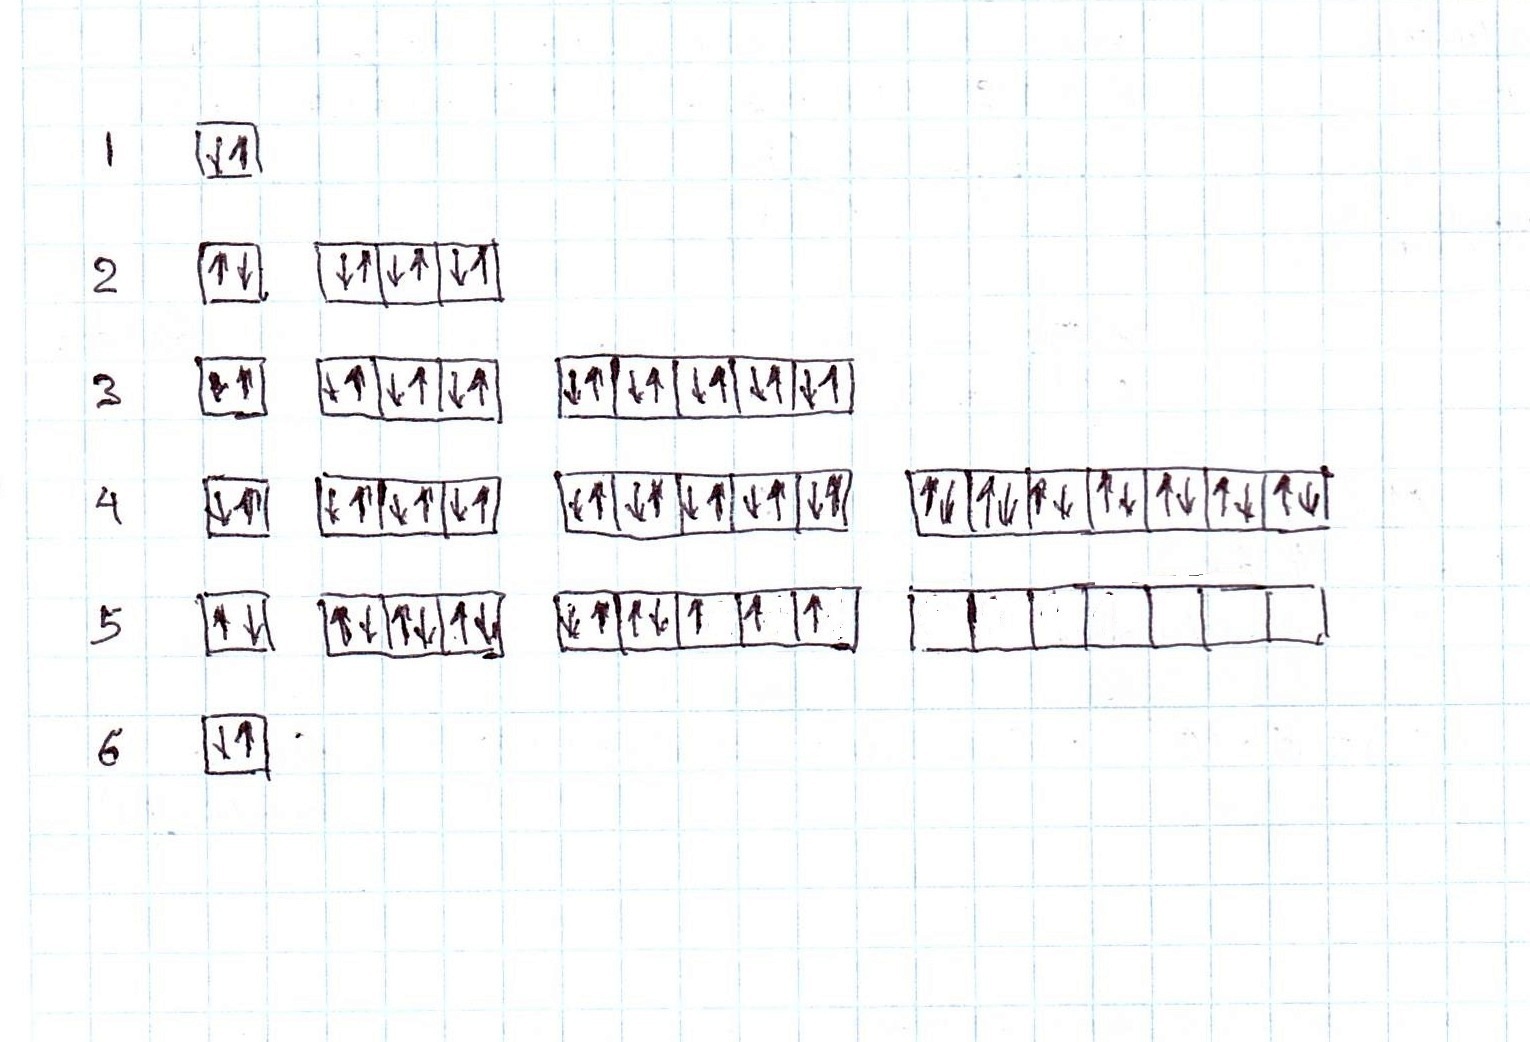 1 ↓↑
2 ↑↓ ↓↑ ↓↑ ↓↑
3 ↓↑ ↓↑ ↓↑ ↓↑ ↓↑ ↓↑ ↓↑ ↓↑ ↓↑
4 ↓↑ ↓↑ ↓↑ ↓↑ ↓↑ ↓↑ ↓↑ ↓↑ ↓↑ ↑↓ ↑↓ ↑↓ ↑↓ ↑↓ ↑↓ ↑↓
5 ↑↓ ↑↓ ↑↓ ↑↓ ↓↑ ↑↓ ↑ ↑ ↑
6 ↓↑